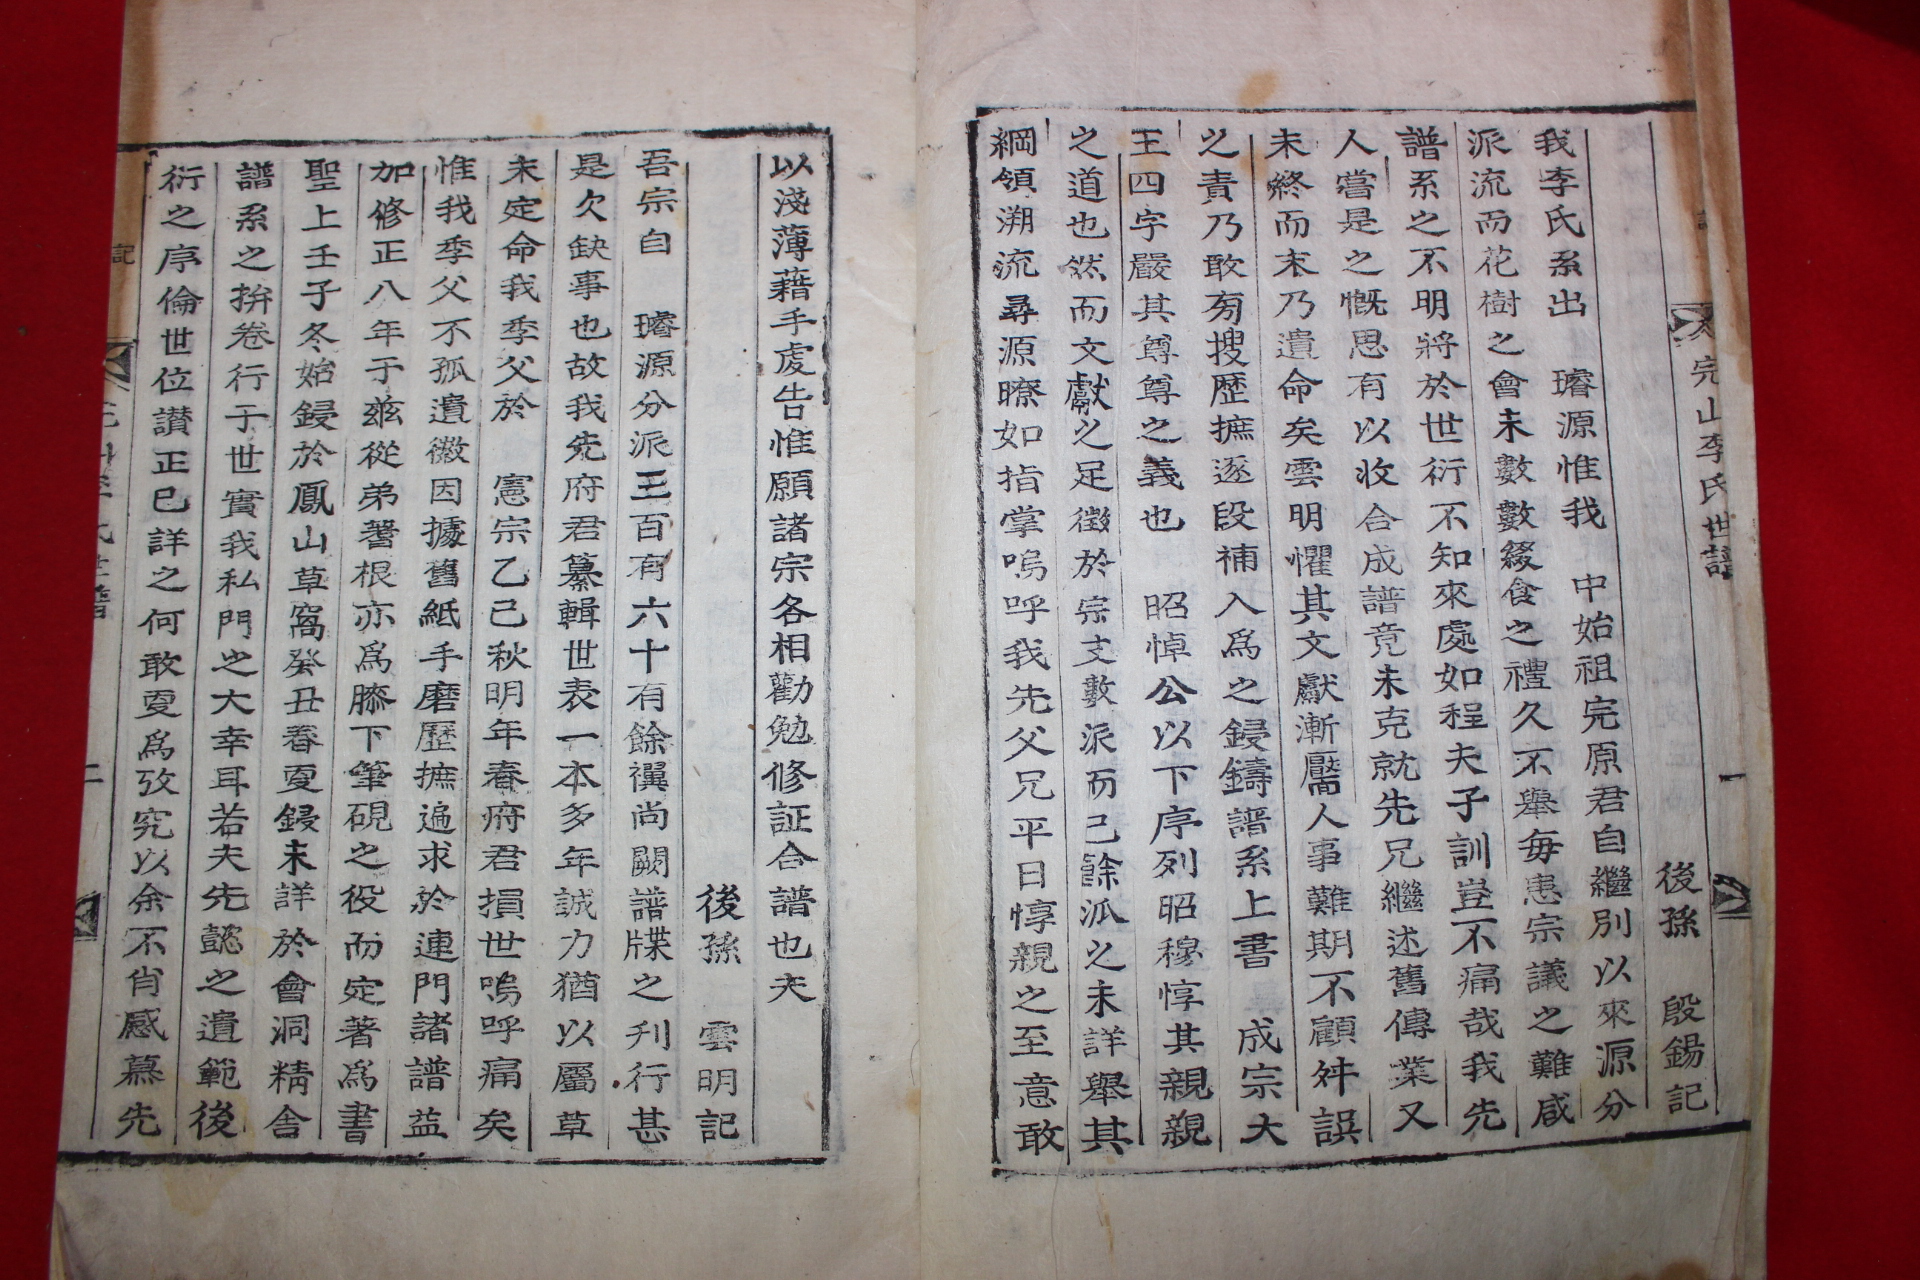 完山李氏世譜
一
後孫 殷錫記
我李氏系出 璿源惟我 中始祖完原君自繼別以來源分
派流而花樹之會未數數綴食之禮久不舉每患宗議之難咸
譜系之不明將於世衍不知來處如程夫子訓豈不痛哉我先
人嘗是之慨思有以收合成譜竟未克就先兄繼述舊傳業又
未終而末乃遺命矣雲明懼其文獻漸壓人事難期不顧舛誤
之責乃敢旁搜歷摭逐段補入為之鋟鑄譜系上書 成宗大
王四字嚴其尊尊之義也 昭悼公以下序列昭穆惇其親親
之道也然而文獻之足徵於宗支數派而已餘派之未詳舉其
綱領溯流尋源瞭如指掌嗚呼我先父兄平日惇親之至意敢
以淺薄藉手虔告惟願諸宗各相勸勉修証合譜也夫
後孫 雲明記
吾宗自 璿源分派王百有六十有餘禩尚闕譜牒之刋行甚
是欠缺事也故我先府君纂輯世表一本多年誠力猶以屬草
未定命我季父於 憲宗乙己秋明年春府君損世嗚呼痛矣
惟我季父不孤遺徽因據舊紙手磨歷摭遍求於連門諸譜益
加修正八年于玆從弟著根亦為膝下筆硯之役而定著為書
聖上壬子冬始鋟於鳳山草窩癸丑春夏鋟未詳於會洞精舍
譜系之拚卷行于世實我私門之大幸耳若夫先懿之遺範後
衍之序倫世位讃正已詳之何敢更為攷究以余不肖感慕先
二
記